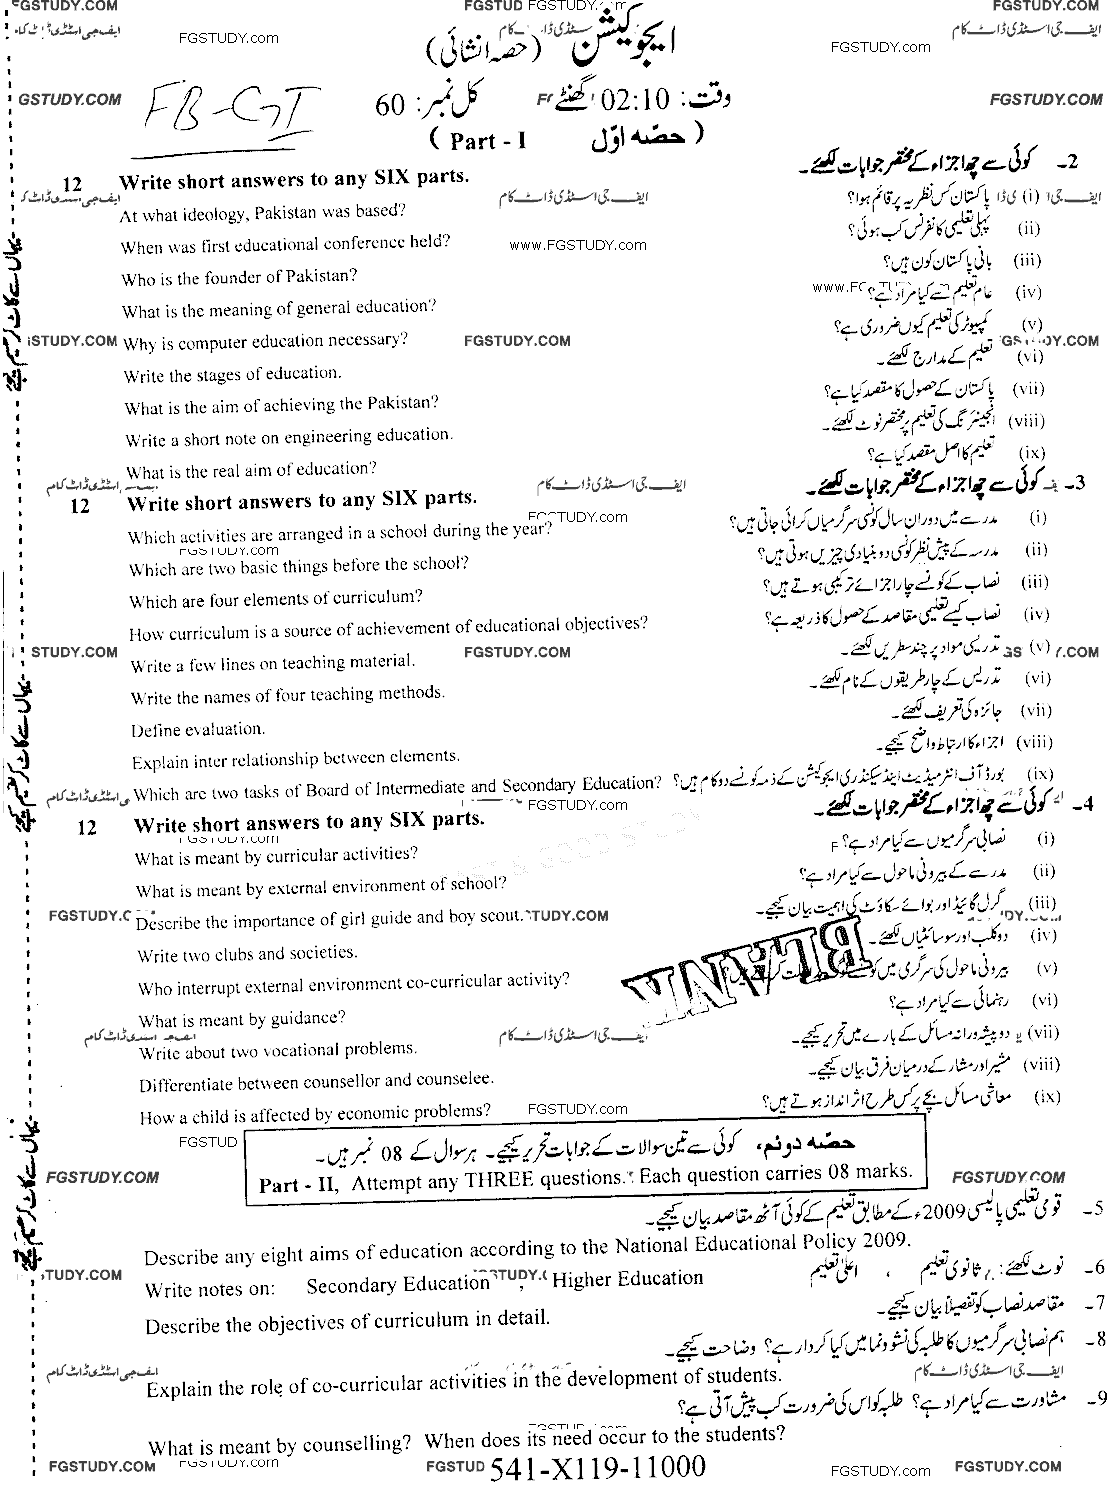 FGSTUDY.com
ایجوکیشن (حصہ انشائی)
FB-GI
وقت: 02:10 گھنٹے کل نمبر: 60
(Part - I حصّہ اوّل)
2- کوئی سے چھ اجزاء کے مختصر جوابات لکھئے۔
12 Write short answers to any SIX parts.
(i) پاکستان کس نظریہ پر قائم ہوا؟
At what ideology, Pakistan was based?
(ii) پہلی تعلیمی کانفرنس کب ہوئی؟
When was first educational conference held?
www.FGSTUDY.com
(iii) بانی پاکستان کون ہیں؟
Who is the founder of Pakistan?
(iv) عام تعلیم سے کیا مراد ہے؟
What is the meaning of general education?
(v) کمپیوٹر کی تعلیم کیوں ضروری ہے؟
Why is computer education necessary?
(vi) تعلیم کے مدارج لکھئے۔
Write the stages of education.
(vii) پاکستان کے حصول کا مقصد کیا ہے؟
What is the aim of achieving the Pakistan?
(viii) انجینئرنگ کی تعلیم پر مختصر نوٹ لکھئے۔
Write a short note on engineering education.
(ix) تعلیم کا اصل مقصد کیا ہے؟
What is the real aim of education?
3- کوئی سے چھ اجزاء کے مختصر جوابات لکھئے۔
12 Write short answers to any SIX parts.
(i) مدرسے میں دوران سال کونسی سرگرمیاں کرائی جاتی ہیں؟
Which activities are arranged in a school during the year?
(ii) مدرسہ کے پیش نظر کونسی دو بنیادی چیزیں ہوتی ہیں؟
Which are two basic things before the school?
(iii) نصاب کے کونسے چار اجزائے ترکیبی ہوتے ہیں؟
Which are four elements of curriculum?
(iv) نصاب کیسے تعلیمی مقاصد کے حصول کا ذریعہ ہے؟
How curriculum is a source of achievement of educational objectives?
(v) تدریسی مواد پر چند سطریں لکھئے۔
Write a few lines on teaching material.
(vi) تدریس کے چار طریقوں کے نام لکھئے۔
Write the names of four teaching methods.
(vii) جائزہ کی تعریف لکھئے۔
Define evaluation.
(viii) اجزاء کا ارتباط واضح کیجیے۔
Explain inter relationship between elements.
(ix) بورڈ آف انٹرمیڈیٹ اینڈ سیکنڈری ایجوکیشن کے ذمہ کونسے دو کام ہیں؟
Which are two tasks of Board of Intermediate and Secondary Education?
4- کوئی سے چھ اجزاء کے مختصر جوابات لکھئے۔
12 Write short answers to any SIX parts.
(i) نصابی سرگرمیوں سے کیا مراد ہے؟
What is meant by curricular activities?
(ii) مدرسے کے بیرونی ماحول سے کیا مراد ہے؟
What is meant by external environment of school?
(iii) گرل گائیڈ اور بوائے سکاؤٹ کی اہمیت بیان کیجیے۔
Describe the importance of girl guide and boy scout.
(iv) دو کلب اور سوسائٹیاں لکھئے۔
Write two clubs and societies.
BLANK
(v) بیرونی ماحول کی سرگرمی میں
Who interrupt external environment co-curricular activity?
(vi) رہنمائی سے کیا مراد ہے؟
What is meant by guidance?
(vii) دو پیشہ ورانہ مسائل کے بارے میں تحریر کیجیے۔
Write about two vocational problems.
(viii) مشیر اور مشار کے درمیان فرق بیان کیجیے۔
Differentiate between counsellor and counselee.
(ix) معاشی مسائل بچے پر کس طرح اثر انداز ہوتے ہیں؟
How a child is affected by economic problems?
حصّہ دوئم، کوئی سے تین سوالات کے جوابات تحریر کیجیے۔ ہر سوال کے 08 نمبر ہیں۔
Part - II, Attempt any THREE questions. Each question carries 08 marks.
5- قومی تعلیمی پالیسی 2009ء کے مطابق تعلیم کے کوئی آٹھ مقاصد بیان کیجیے۔
Describe any eight aims of education according to the National Educational Policy 2009.
6- نوٹ لکھئے: ثانوی تعلیم ، اعلیٰ تعلیم
Write notes on: Secondary Education , Higher Education
7- مقاصد نصاب کو تفصیلاً بیان کیجیے۔
Describe the objectives of curriculum in detail.
8- ہم نصابی سرگرمیوں کا طلبہ کی نشوونما میں کیا کردار ہے؟ وضاحت کیجیے۔
Explain the role of co-curricular activities in the development of students.
9- مشاورت سے کیا مراد ہے؟ طلبہ کو اس کی ضرورت کب پیش آتی ہے؟
What is meant by counselling? When does its need occur to the students?
541-X119-11000